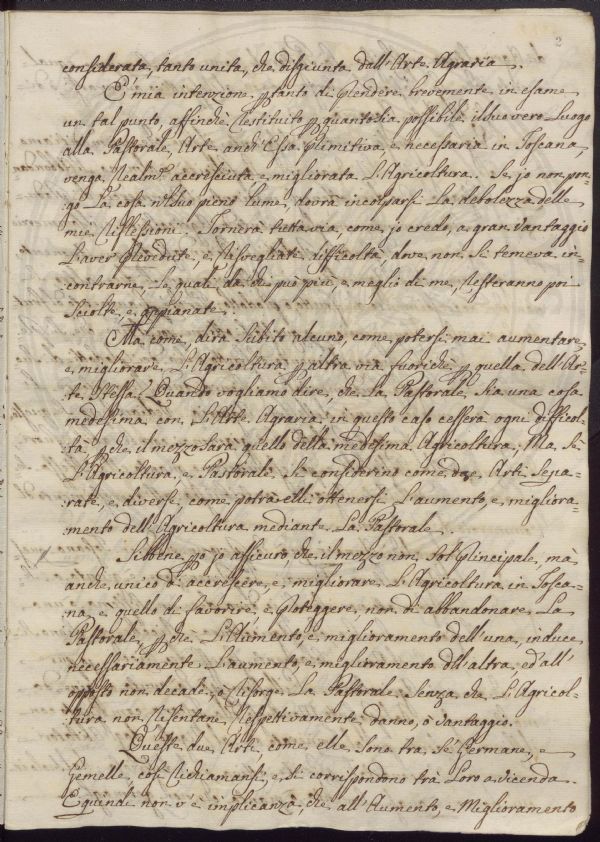 2
considerata, tanto unita, che disgiunta dall'Arte Agraria.
E' mia intenzione ptanto di Prendere brevemente in esame
un tal punto, affinchè Restituito p quanto sia possibile il suo vero Luogo
alla Pastorale, Arte anch'Essa Primitiva, e necessaria in Toscana,
venga Realm.te accresciuta, e migliorata L'Agricoltura. Se jo non pon-
go La cosa nel suo pieno lume, dovrà incolparsi La debolezza delle
mie Riflessioni. Tornerà tuttavia come jo credo, a gran vantaggio
L'aver Prevedute, e Risvegliate difficoltà, dove non Si temeva in-
contrarne, Le quali da chi può più, e meglio di me, Resteranno poi
Sciolte, e appianate.
Ma come, dirà Subito alcuno, come potersi mai aumentare
e migliorare L'Agricoltura p altra via fuorichè p quella dell'Ar-
te Stessa? Quando vogliamo dire, che La Pastorale Sia una cosa
medesima con L'Arte Agraria in questo caso cesserà ogni difficol-
tà pche il mezzo sarà quello della medesima Agricoltura; Ma Se
L'Agricoltura, e Pastorale Si considerino come due Arti Sepa-
rate, e diverse, come potrà elli ottenersi L'aumento, e migliora-
mento dell'Agricoltura mediante La Pastorale.
Sibbene po jo assicuro, che il mezzo non Sol Principale, mà
anche unico di accrescere, e migliorare L'Agricoltura in Tosca-
na, e quello di favorire, e Proteggere, non di abbandonare La
Pastorale, pche L'Aumento, e miglioramento dell'una, induce
necessariamente L'aumento, e miglioramento dell'altra, ed all'
opposto non decade, o Risorge La Pastorale Senza che L'Agricol-
tura non Risentane Respettivamente danno, ò vantaggio.
Queste due Arti come elle Sono tra Sé Germane, e
Gemelle, così Richiamansi, e Si corrispondono trà Loro a vicenda.
E quindi non v'è implicanza, che all'Aumento, e Miglioramento